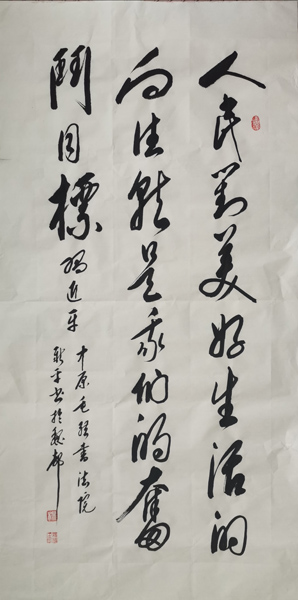 人民對美好生活的
向往就是我們的奮
鬥目標 習近平
中原毛體書法院
書於魏都